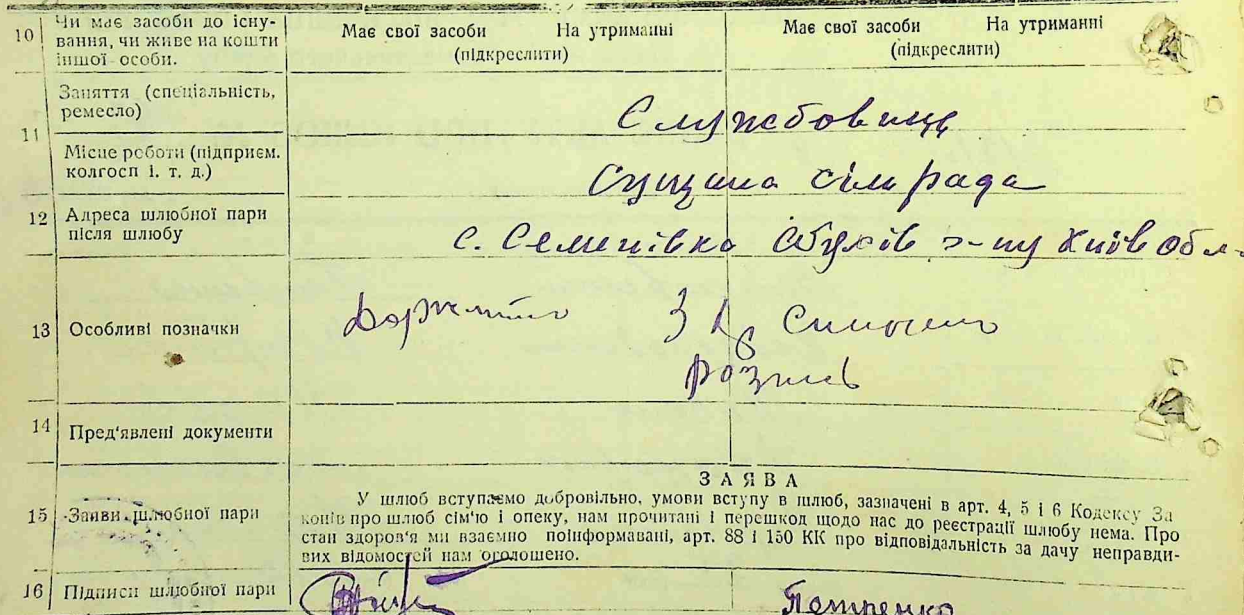 10 Чи має засоби до існування, чи живе на кошти іншої особи.
Має свої засоби На утриманні
(підкреслити)
Має свої засоби На утриманні
(підкреслити)
11 Заняття (спеціальність, ремесло)
Службовице
Місце роботи (підприєм. колгосп і. т. д.)
сілм рада
12 Адреса шлюбної пари після шлюбу
с. Семенівка Обухів р-ну Київ Обл.
13 Особливі позначки
14 Пред'явлені документи
15 Заяви шлюбної пари
ЗАЯВА
У шлюб вступаємо добровільно, умови вступу в шлюб, зазначені в арт. 4, 5 і 6 Кодексу За
конів про шлюб сім'ю і опеку, нам прочитані і перешкод щодо нас до реєстрації шлюбу нема. Про
стан здоров'я ми взаємно поінформавані, арт. 88 і 150 КК про відповідальність за дачу неправди-
вих відомостей нам оголошено.
16 Підписи шлюбної пари
Петренко